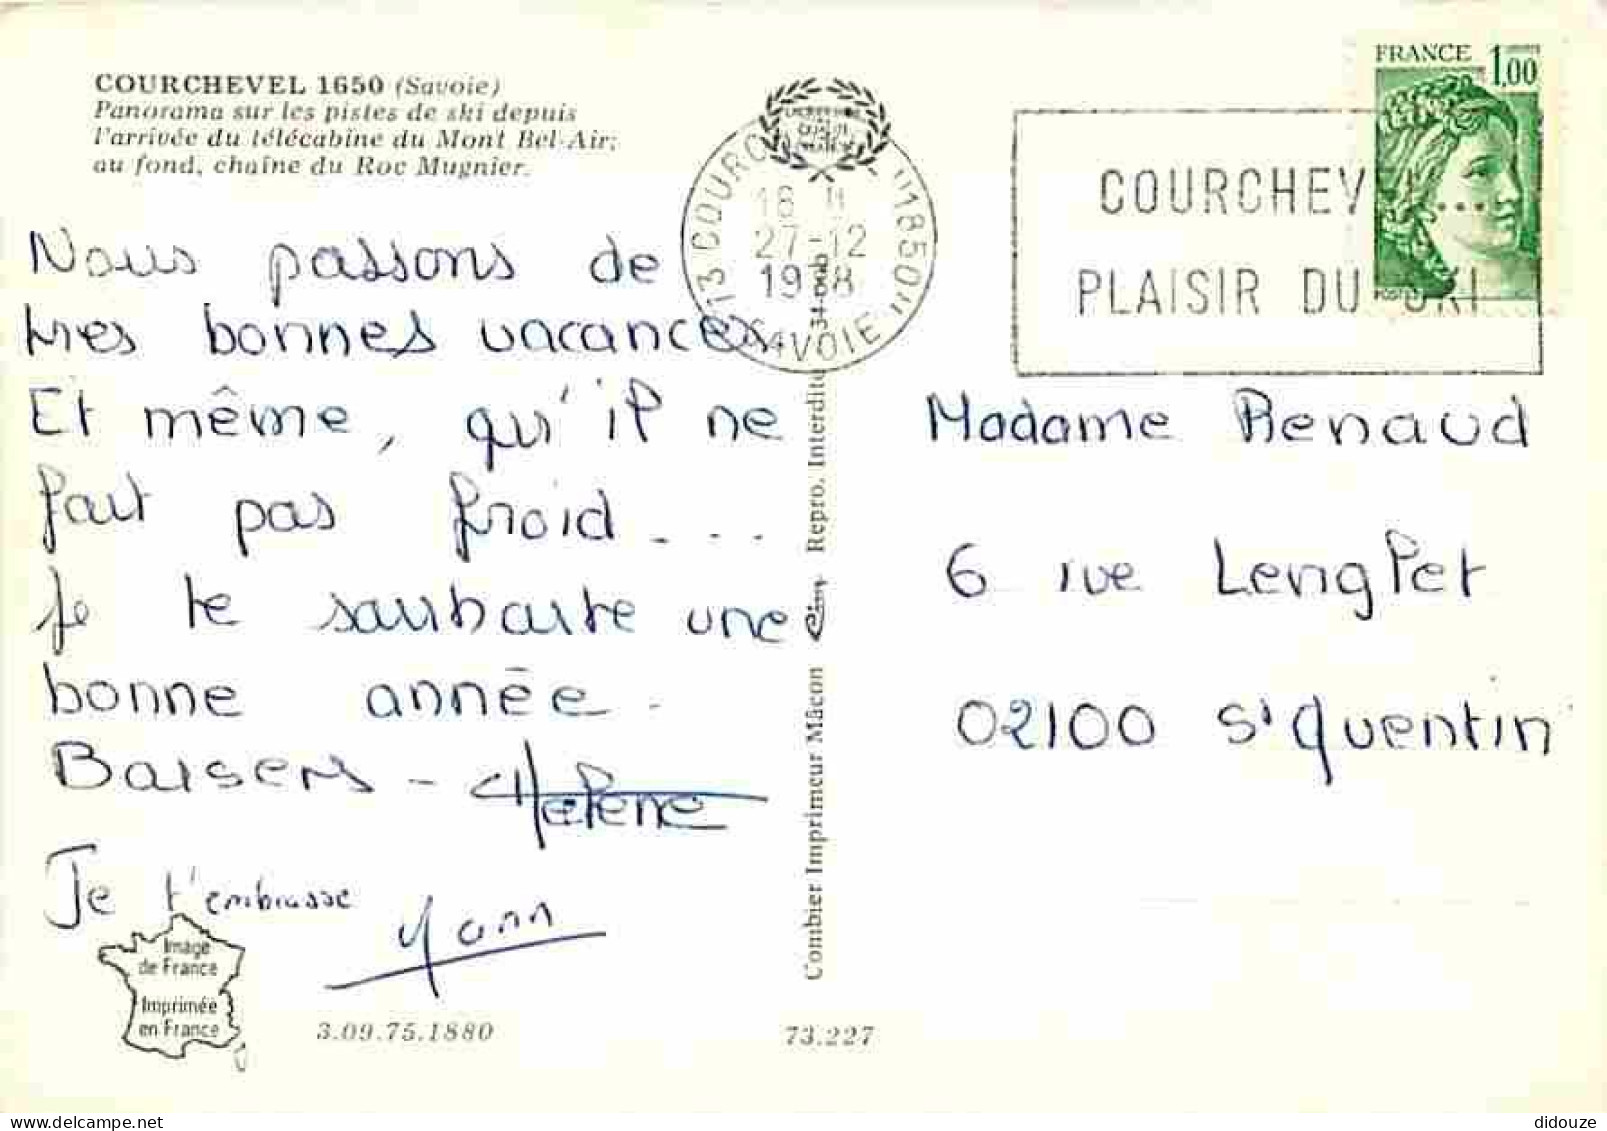 COURCHEVEL 1650 (Savoie)
Panorama sur les pistes de ski depuis
l'arrivée du télécabine du Mont Bel-Air;
au fond, chaîne du Roc Mugnier.
Nous passons de
tres bonnes vacances.
Et même, qu'il ne
fait pas froid...
Je te souhaite une
bonne année.
Baisers - Helene
Je t'embrasse
Yann
Image
de France
Imprimée
en France
3.09.75.1880
73.227
Combier Imprimeur Mâcon Cim Repro. Interdite
73 COURC "1850"
SAVOIE
27-12
FRANCE 1,00
COURCHEV ...
PLAISIR DU SKI
Madame Renaud
6 rue
02100 St Quentin
didouze